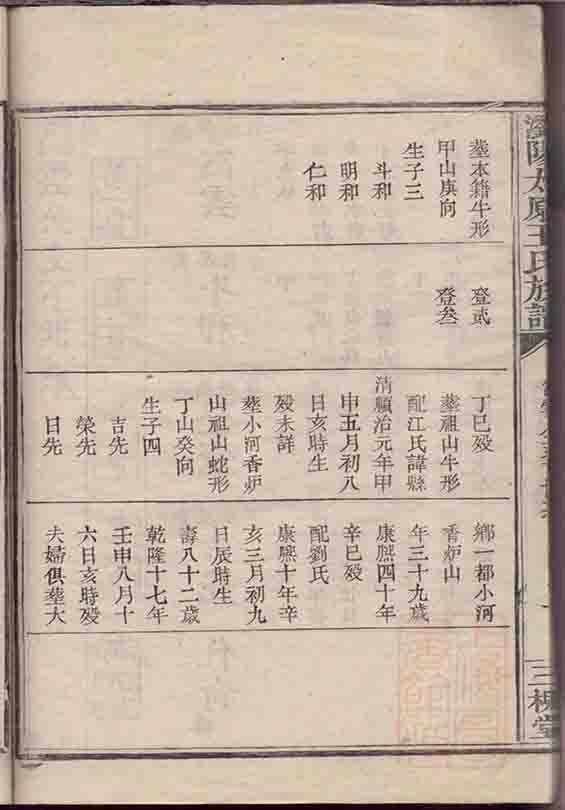 瀏陽太原王氏族譜
三槐堂
塟本籍牛形
甲山庚向
生子三
斗和
明和
仁和
登貳
登叁
丁巳殁
塟祖山牛形
配江氏諱縣
清順治元年甲
申五月初八
日亥時生
殁未詳
塟小河香炉
山祖山蛇形
丁山癸向
生子四
吉先
榮先
日先
鄉一都小河
香炉山
年三十九歲
康熈四十年
辛巳殁
配劉氏
康熈十年辛
亥三月初九
日辰時生
壽八十二歲
乾隆十七年
壬申八月十
六日亥時殁
夫婦俱塟大